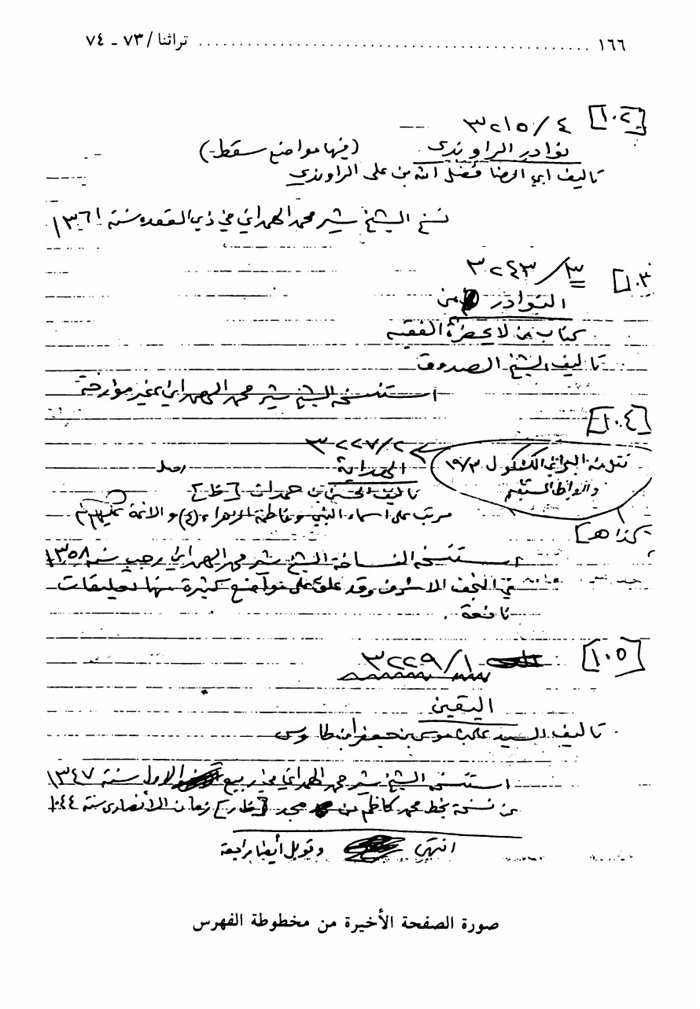 ١٦٦ ........................................................ تراثنا / ٧٣ ـ ٧٤
[١٠٢]
٣٢١٥/٤
نوادر الراوندي (فيها مواضع سقط)
تأليف ابي الرضا فضل الله بن علي الراوندي
نسخ الشيخ شير محمد الهمداني في ذي القعده سنة ١٣٦١
[١٠٣]
٣٢٤٣/٣
النوادر من
كتاب من لا يحضرة الفقيه
تاليف الشيخ الصدوق
استنسخه الشيخ شير محمد الهمداني بغير مؤرخة
[١٠٤]
٣٢٢٧/٢
الهداية
تاليف الحسين بن حمدان [ظ]
مرتب على اسماء النبي وفاطمة الزهراء (ع) والائمة
[كذا هـ]
استنسخه الشيخ شير محمد الهمداني رجب سنة ١٣٥٨
في النجف الاشرف وقد علق على مواضع كثيرة منها تعليقات
نافعة.
[١٠٥]
٣٢٢٩/١
اليقين
تاليف السيد علي بن موسى بن جعفر ابن طاوس
استنسخه الشيخ شير محمد الهمداني في ربيع الاول سنة ١٣٤٧
من نسخة بخط محمد كاظم بن الأنصاري سنة ١٠٤٤
انتهى وقوبل أيضا
صورة الصفحة الأخيرة من مخطوطة الفهرس